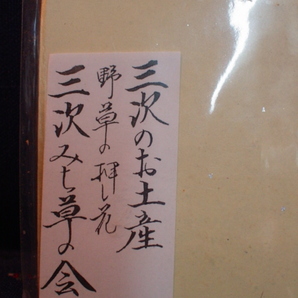 三次のお土産
野草の押し花
三次みち草の会